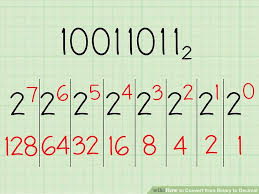 10011011₂
2⁷ 2⁶ 2⁵ 2⁴ 2³ 2² 2¹ 2⁰
128 64 32 16 8 4 2 1
wikiHow to Convert from Binary to Decimal